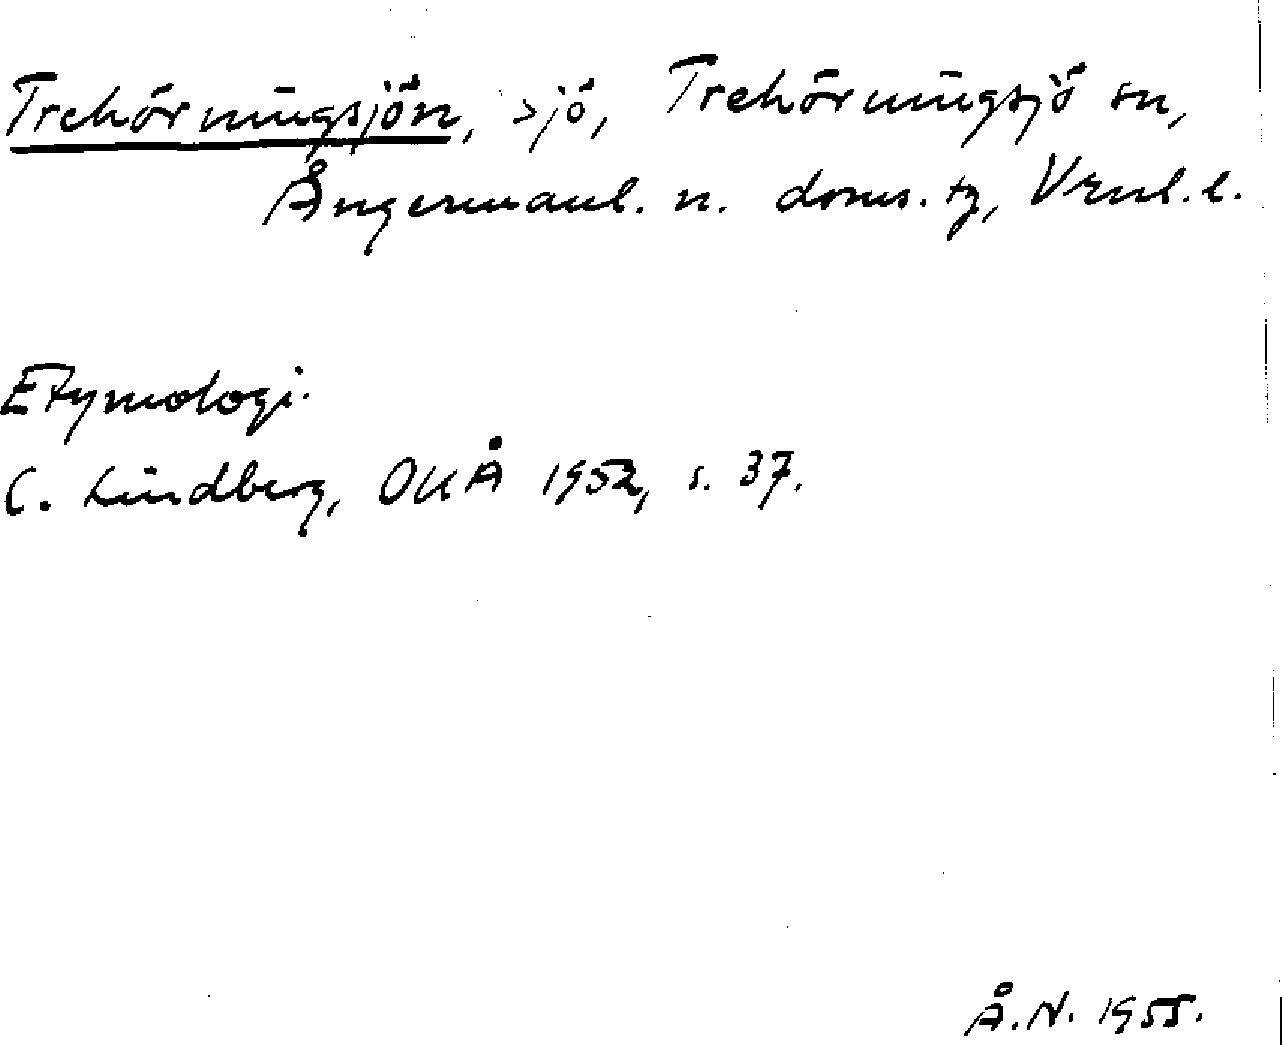 Trehörningsjön, sjö, Trehörningsjö sn,
Ångermanl. n. doms. tg, Vrnl. l.
Etymologi.
C. Lindberg, OUÅ 1952, s. 37.
Å.N. 1955.